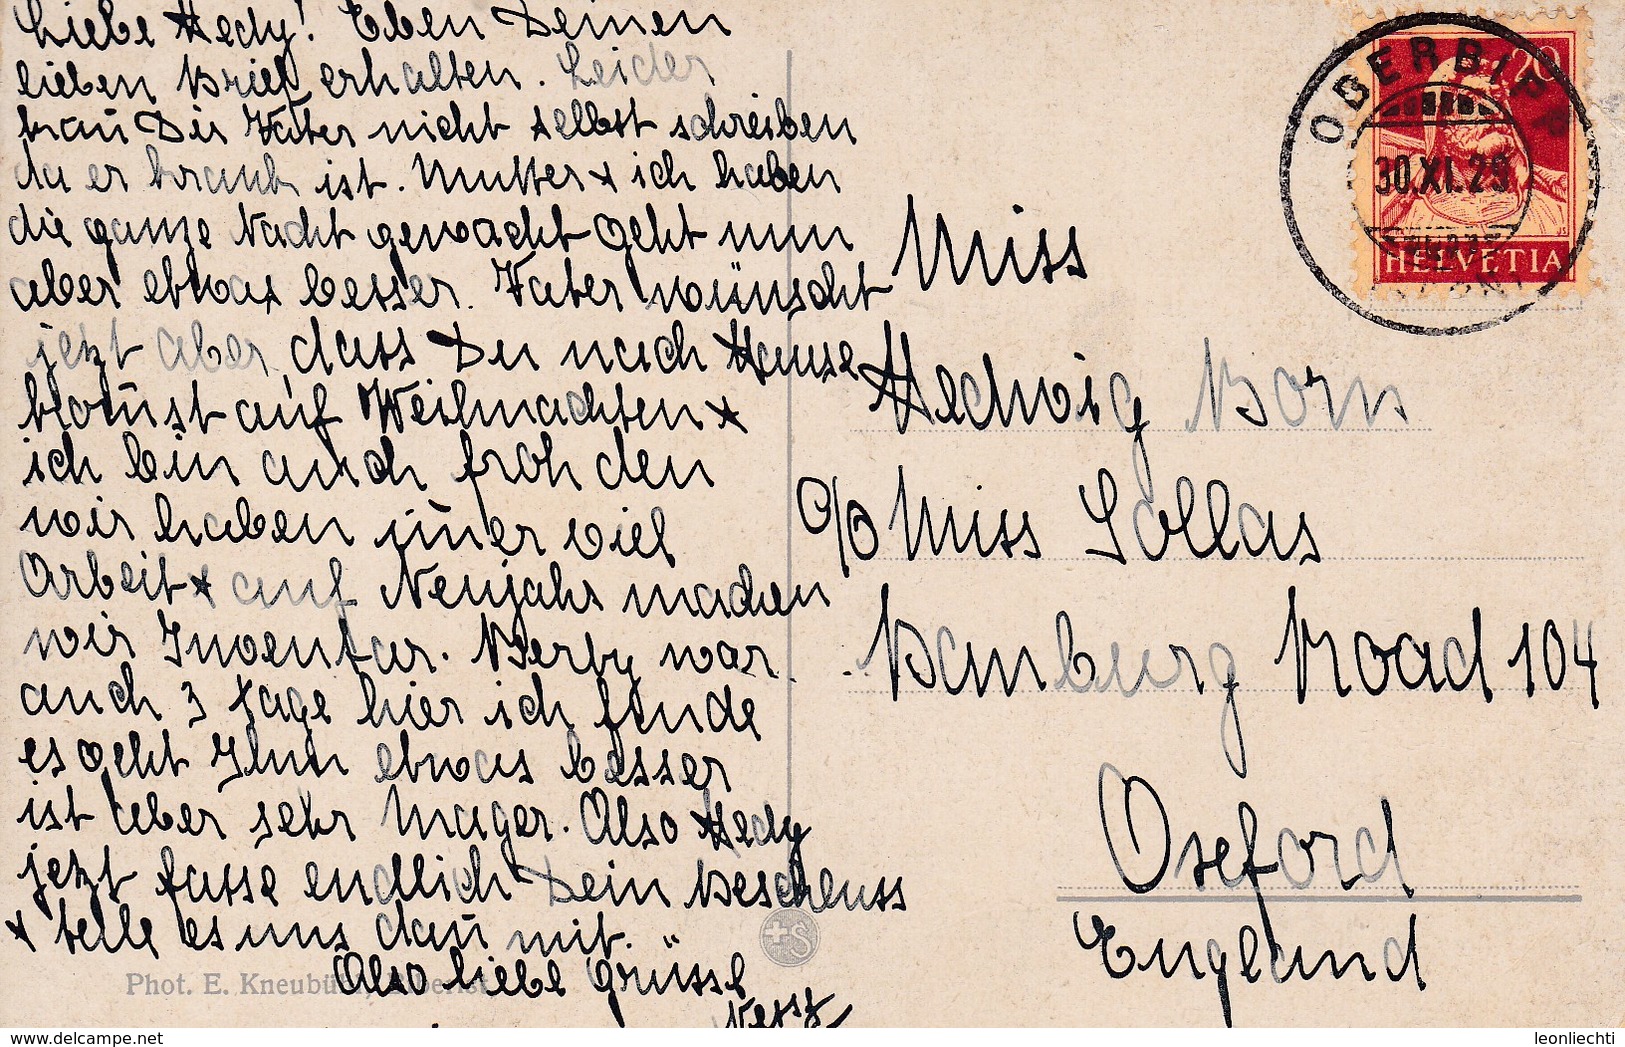 Liebe Hedy! Eben Deinen
lieben Brief erhalten. Leider
kan̄ Dir Vater nicht selbst schreiben
da er krank ist. Mutter + ich haben
die ganze Nacht gewacht geht nun
aber etwas besser. Vater wünscht
jetzt aber dass Du nach Hause
kom̄st auf Weihnachten +
ich bin auch froh den
wir haben im̄er viel
Arbeit + auf Neujahr machen
wir Inventar. Berby war
auch 3 Tage hier ich finde
es geht Ihm etwas besser
ist aber sehr Mager. Also Hedy
jetzt fasse endlich Dein Beschluss
+ teile es uns dan̄ mit.
Also liebe Grüsse
Miss
Hedwig Born
c/o Miss Sollas
Bamburg Road 104
Oxeford
England
OBERBIPP
30.XI.29
20
HELVETIA
JS
+S
Phot. E. Kneubühl,
leonliechti
www.delcampe.net